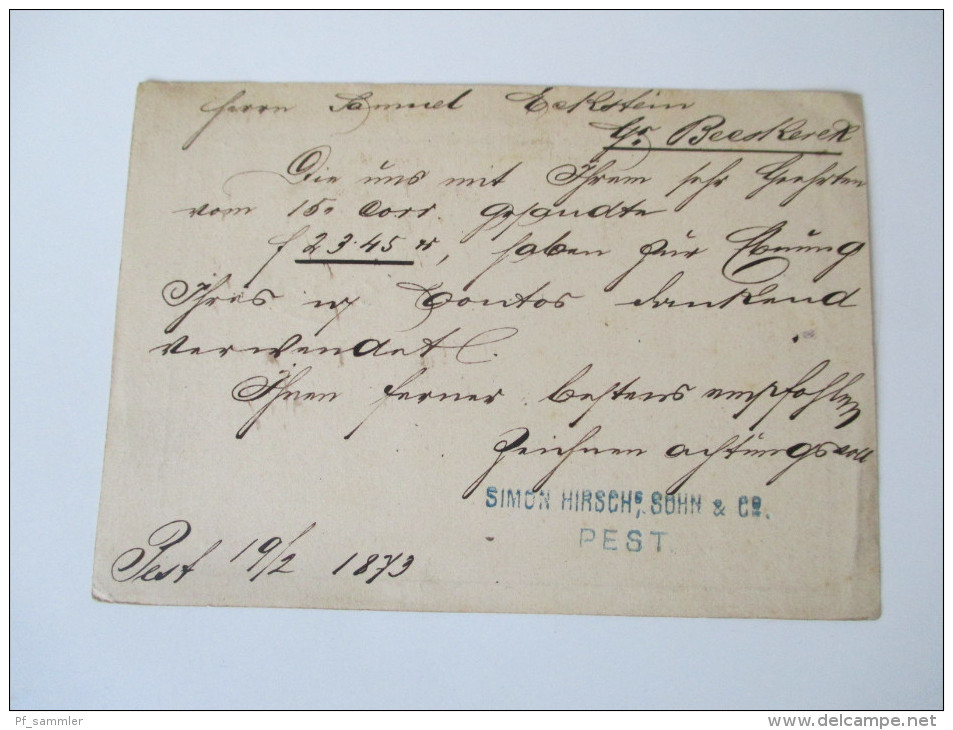 Herrn Samuel Eckstein
Gr. Beeskerek
Die uns mit Ihrem sehr Geehrten
vom 15. Corr. gesandte
f 23.45, haben zur Ebnung
Ihres Contos dankend
verwendet.
Ihnen ferner bestens empfohlen
zeichnen achtungsvoll
SIMON HIRSCHS, SOHN & Co.
PEST
Pest 19/2 1873
Pf_sammler
www.delcampe.net